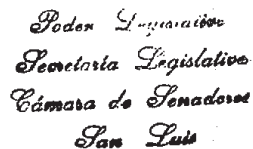 Poder Legislativo
Secretaría Legislativa
Cámara de Senadores
San Luis